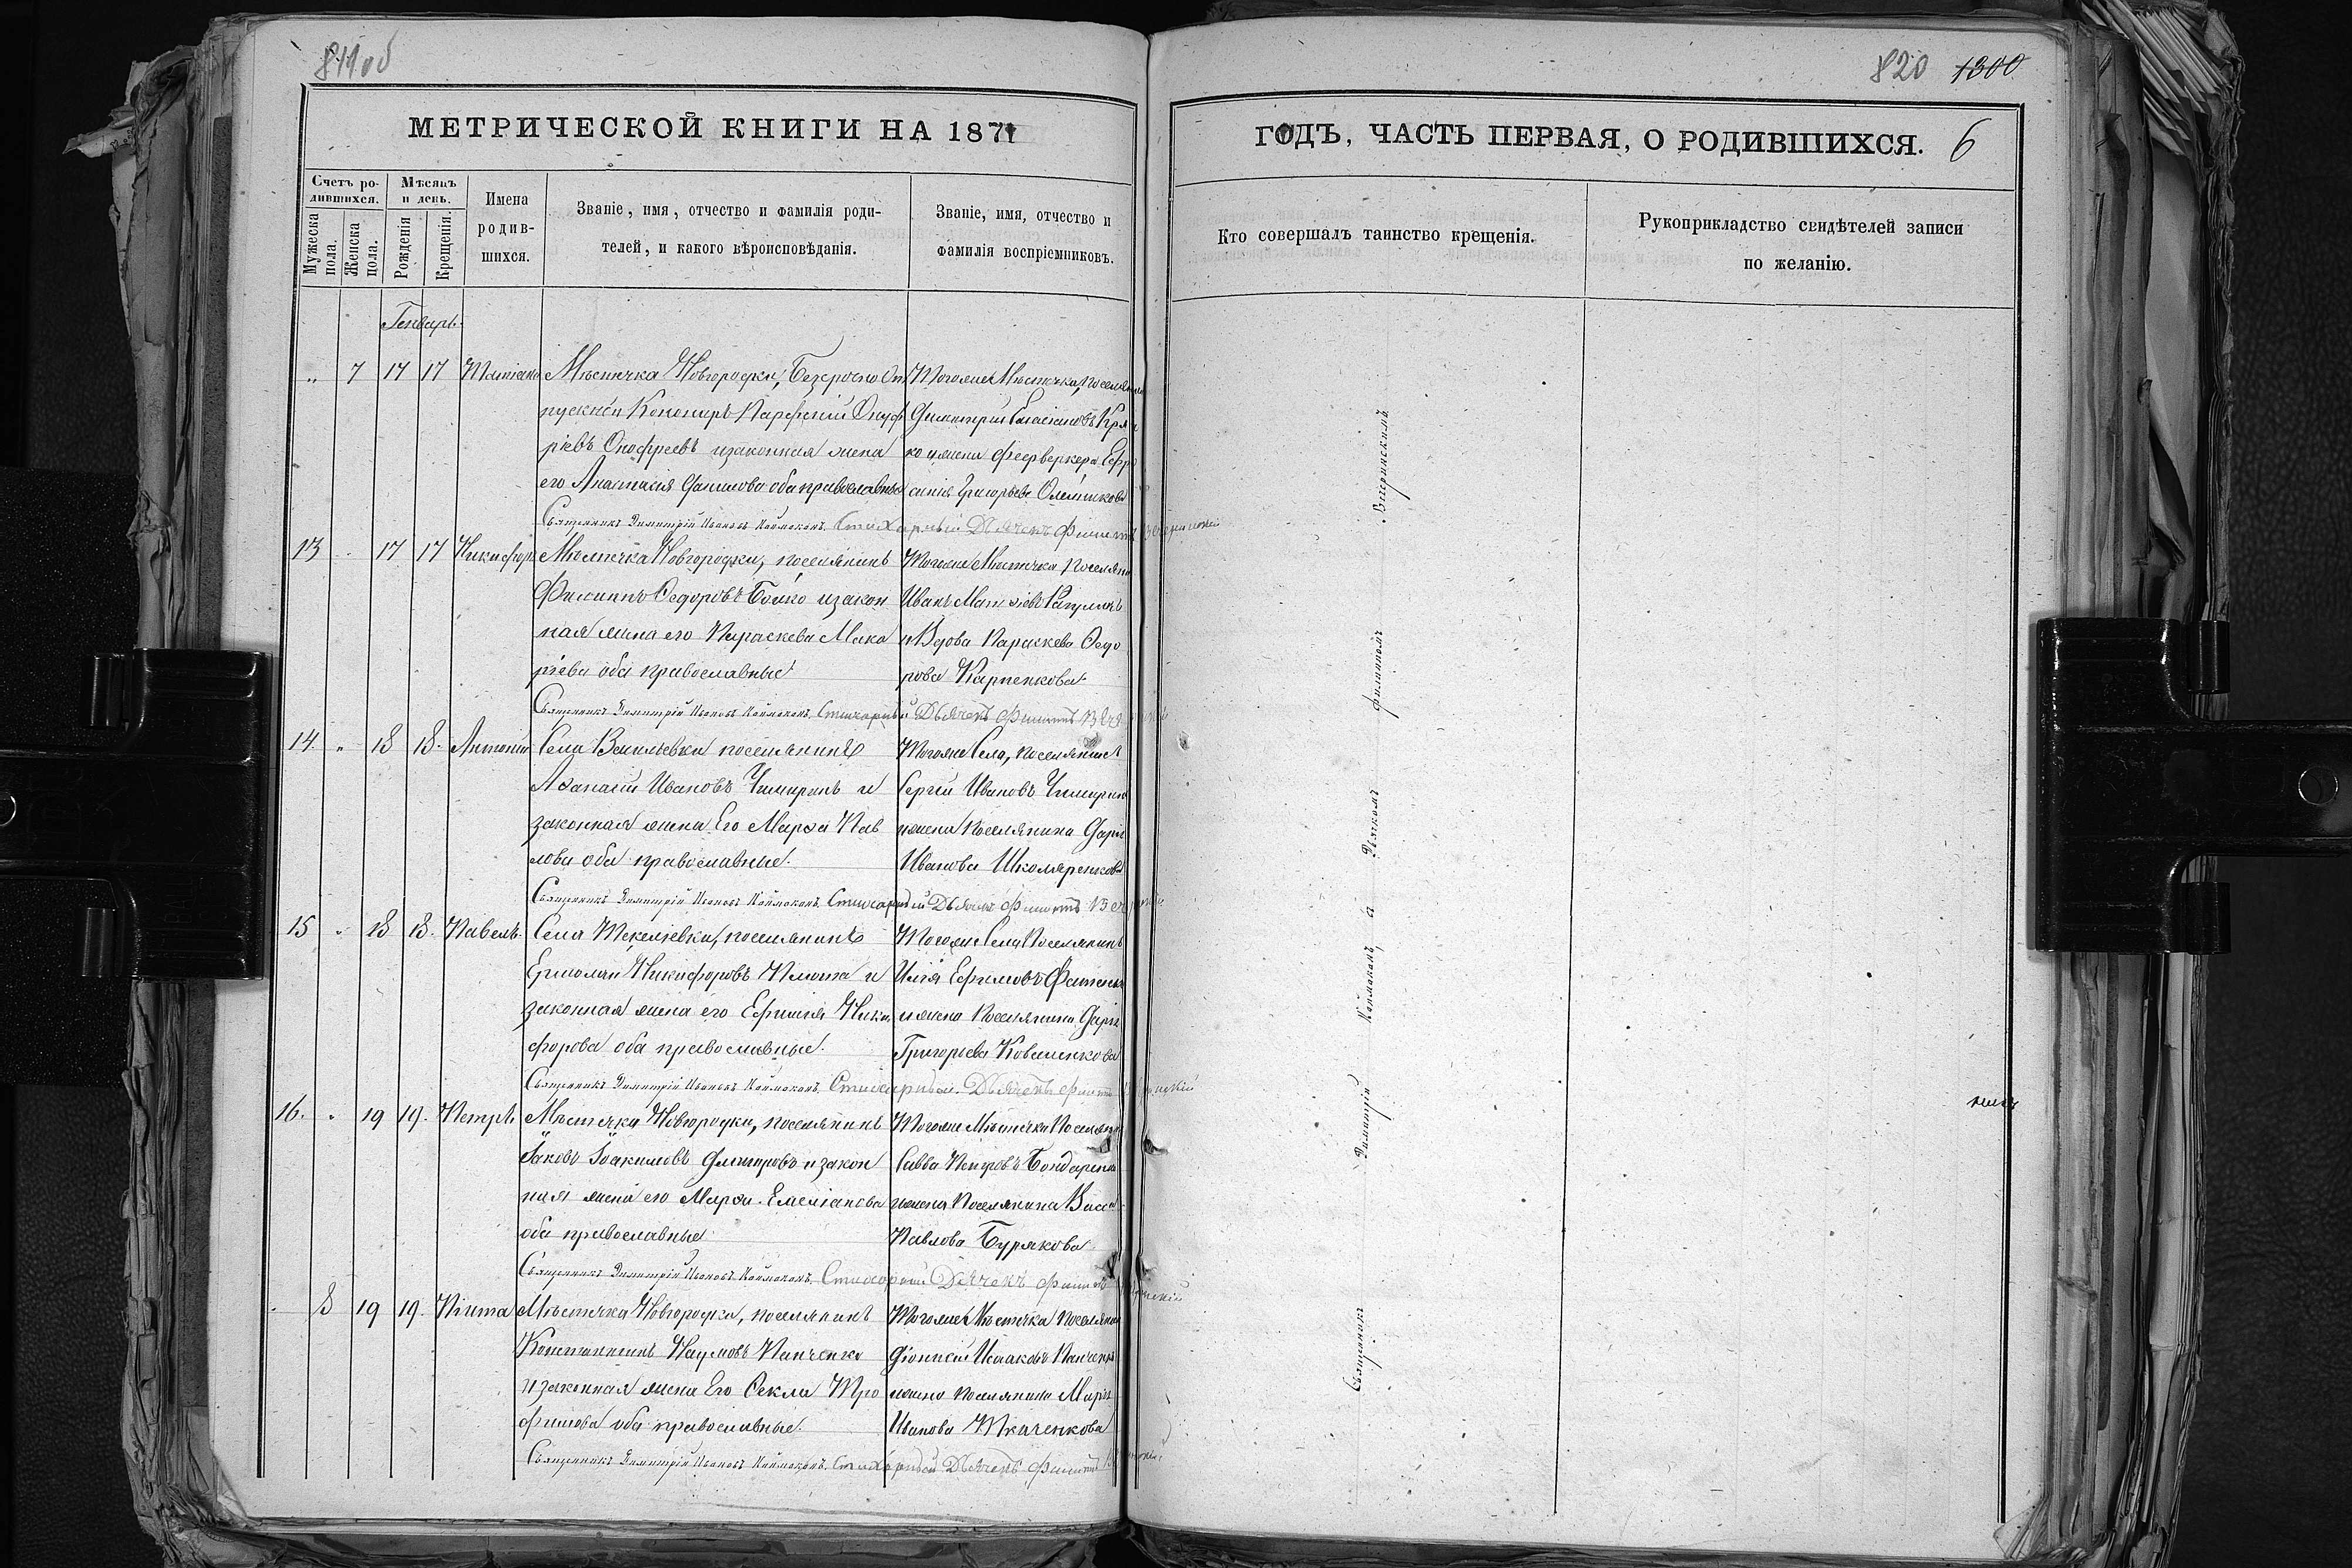 820 1300
МЕТРИЧЕСКОЙ КНИГИ НА 1871
ГОДЪ, ЧАСТЬ ПЕРВАЯ, О РОДИВШИХСЯ. 6
Счетъ родившихся.
Мужеска пола.
Женска пола.
Мѣсяцъ и день.
Рожденія
Крещенія.
Имена родившихся.
Званіе, имя, отчество и фамилія роди-
телей, и какого вѣроисповѣданія.
Званіе, имя, отчество и
фамилія воспріемниковъ.
Кто совершалъ таинство крещенія.
Рукоприкладство свидѣтелей записи
по желанію.
Генварь
„ 7 17 17 Татіана Мѣстечка Новгородки, Безсрочно От
пускной Канониръ Парфеній
его Анастасія Данилова оба православные
Тогоже Мѣстечка, поселянинъ
Димитрій
и жена феерверкера Ефро
синія Григорьева Олейникова
Священникъ Димитрій Ивановъ Каймаканъ. Стихарный Дьячекъ Филиппъ
13 17 17 Никифоръ Мѣстечка Новгородки, поселянинъ
Филиппъ Ѳедоровъ Бойко и закон
ная жена его Параскева Мака
ріева оба православные
Тогоже Мѣстечка поселянинъ
Иванъ
и Вдова Параскева Ѳедо
рова Карпенкова
Священникъ Димитрій Ивановъ Каймаканъ. Стихарный Дьячекъ Филиппъ
14. „ 18 18. Антоній Села Васильевки поселянинъ
Аѳанасій Ивановъ Чимиринъ и
законная жена Его Марѳа Пав
лова оба православные.
Тогоже Села, поселянинъ
Сергій Ивановъ Чимиринъ
и жена поселянина Дарія
Иванова Школяренкова
Священникъ Димитрій Ивановъ Каймаканъ. Стихарный Дьячекъ Филиппъ
15 „ 18 18. Павелъ. Села Текеліевки, поселянинъ
Ермолай Никифоровъ Плюта и
законная жена его Ефимія Ники
форова оба православные.
Тогоже Села Поселянинъ
Илія Ефимовъ
и жена Поселянина Дарія
Григорьева Коваленкова
Священникъ Димитрій Ивановъ Каймаканъ. Стихарный Дьячекъ Филиппъ
16. „ 19 19. Петръ Мѣстечка Новгородки, поселянинъ
Іаковъ Іоакимовъ и закон
ная жена его Марѳа Емеліанова
оба православные
Тогоже Мѣстечка Поселянинъ
Савва Петровъ Бондаренко
и жена Поселянина
Павлова Бурякова
Священникъ Димитрій Ивановъ Каймаканъ. Стихарный Дьячекъ Филиппъ
8 19 19. Мѣстечка Новгородка, поселянинъ
Константинъ Наумовъ Панченко
и законная жена Его Ѳекла Тро
фимова оба православные.
Тогоже Мѣстечка Поселянинъ
Діонисій Исааковъ Панченко
и жена поселянина Марія
Иванова Ткаченкова
Священникъ Димитрій Ивановъ Каймаканъ. Стихарный Дьячекъ Филиппъ
Священникъ Димитрій Каймаканъ, а Дьячкомъ Филиппомъ